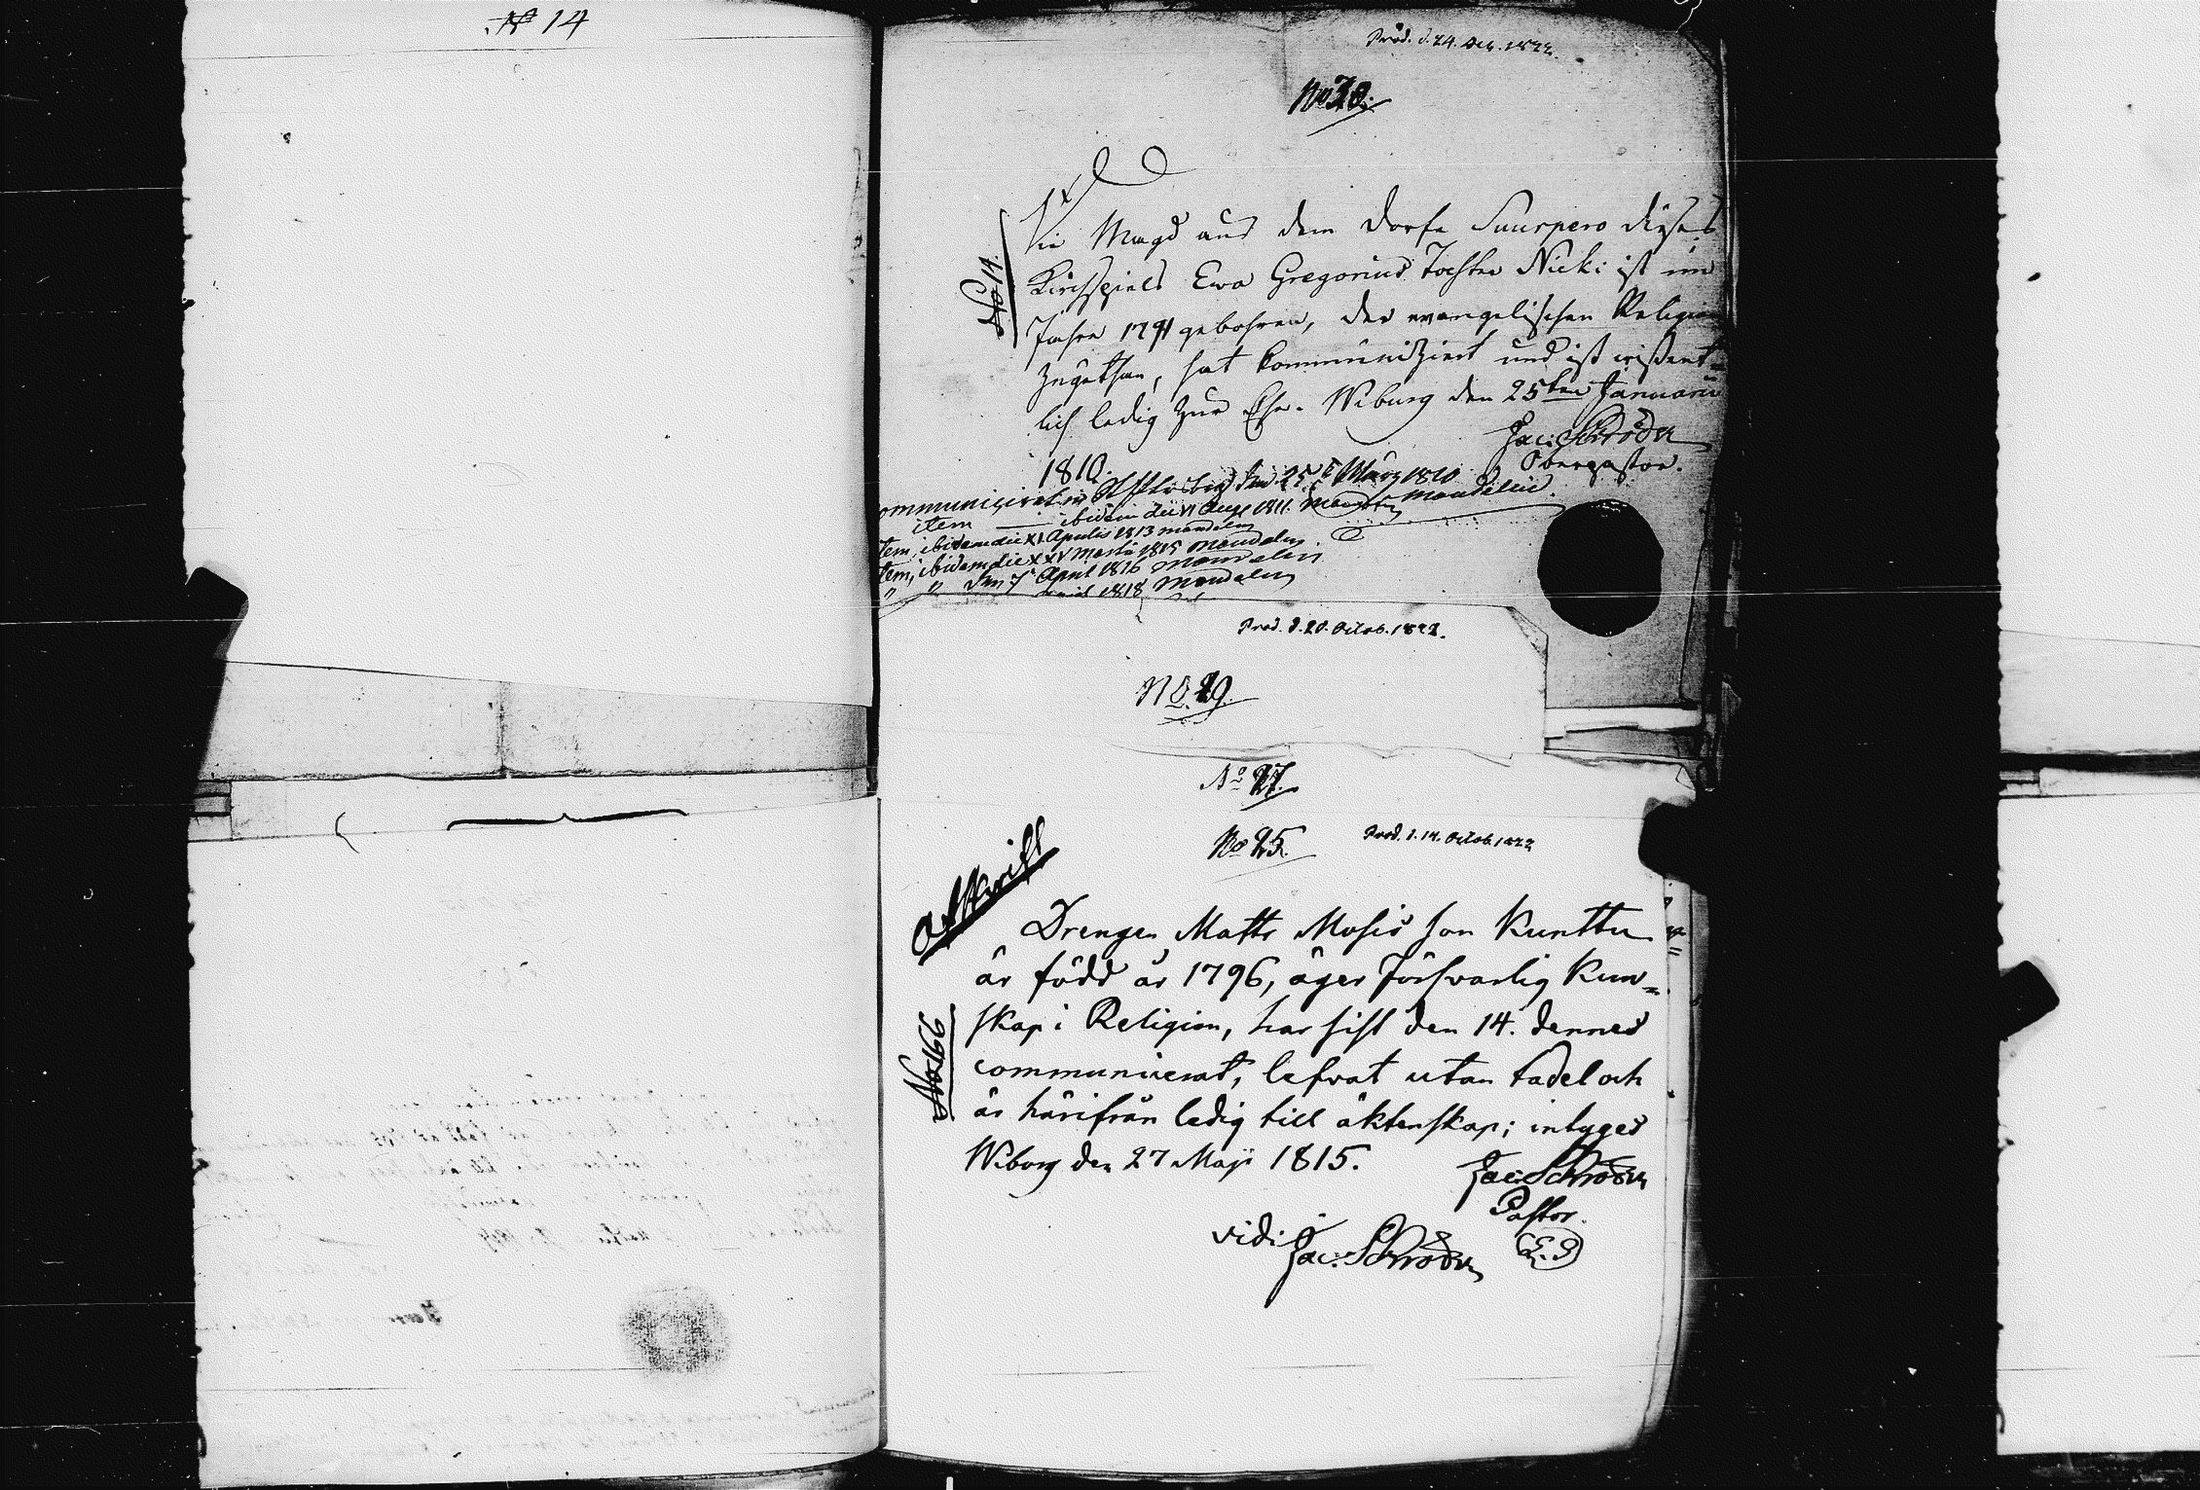 N° 14
Prod. d. 24. Oct. 1822.
No 30.
No 14.
Die Magd aus dem Dorfe Suurpero dieses
Kirchspiels Ewa Gregorius Tochter Nicki ist im
Jahre 1791 gebohren, der evangelischen Religion
zugethan, hat kommuniziert und ist wißent-
lich ledig zur Ehe. Wiburg den 25ten Januarii
1810.
Jac: Schröder
Oberpastor.
communicirat in den 25 März 1810 Mandelin.
item ibidem die VI Aug 1811. Mandelin
item, ibidem die XI Aprilis 1813 Mandelin
item, ibidem die XXV Martii 1815 Mandelin
" " den 7 April 1816 Mandelin
1818 Mandelin
Prod. d. 20. Octob. 1822.
No. 29.
No 27.
No 25.
Prod. d. 14. Octob. 1822
Afskrift
No 166
Drengen Matts Mosis son Kunttu
är född år 1796, äger försvarlig Kun-
skap i Religion, har sist den 14. dennes
communicerat, lefvat utan tadel och
är härifrån ledig till äktenskap; intyges
Wiborg den 27 Maji 1815.
Jac: Schröder
Pastor.
(L. S)
vidi: Jac: Schröder